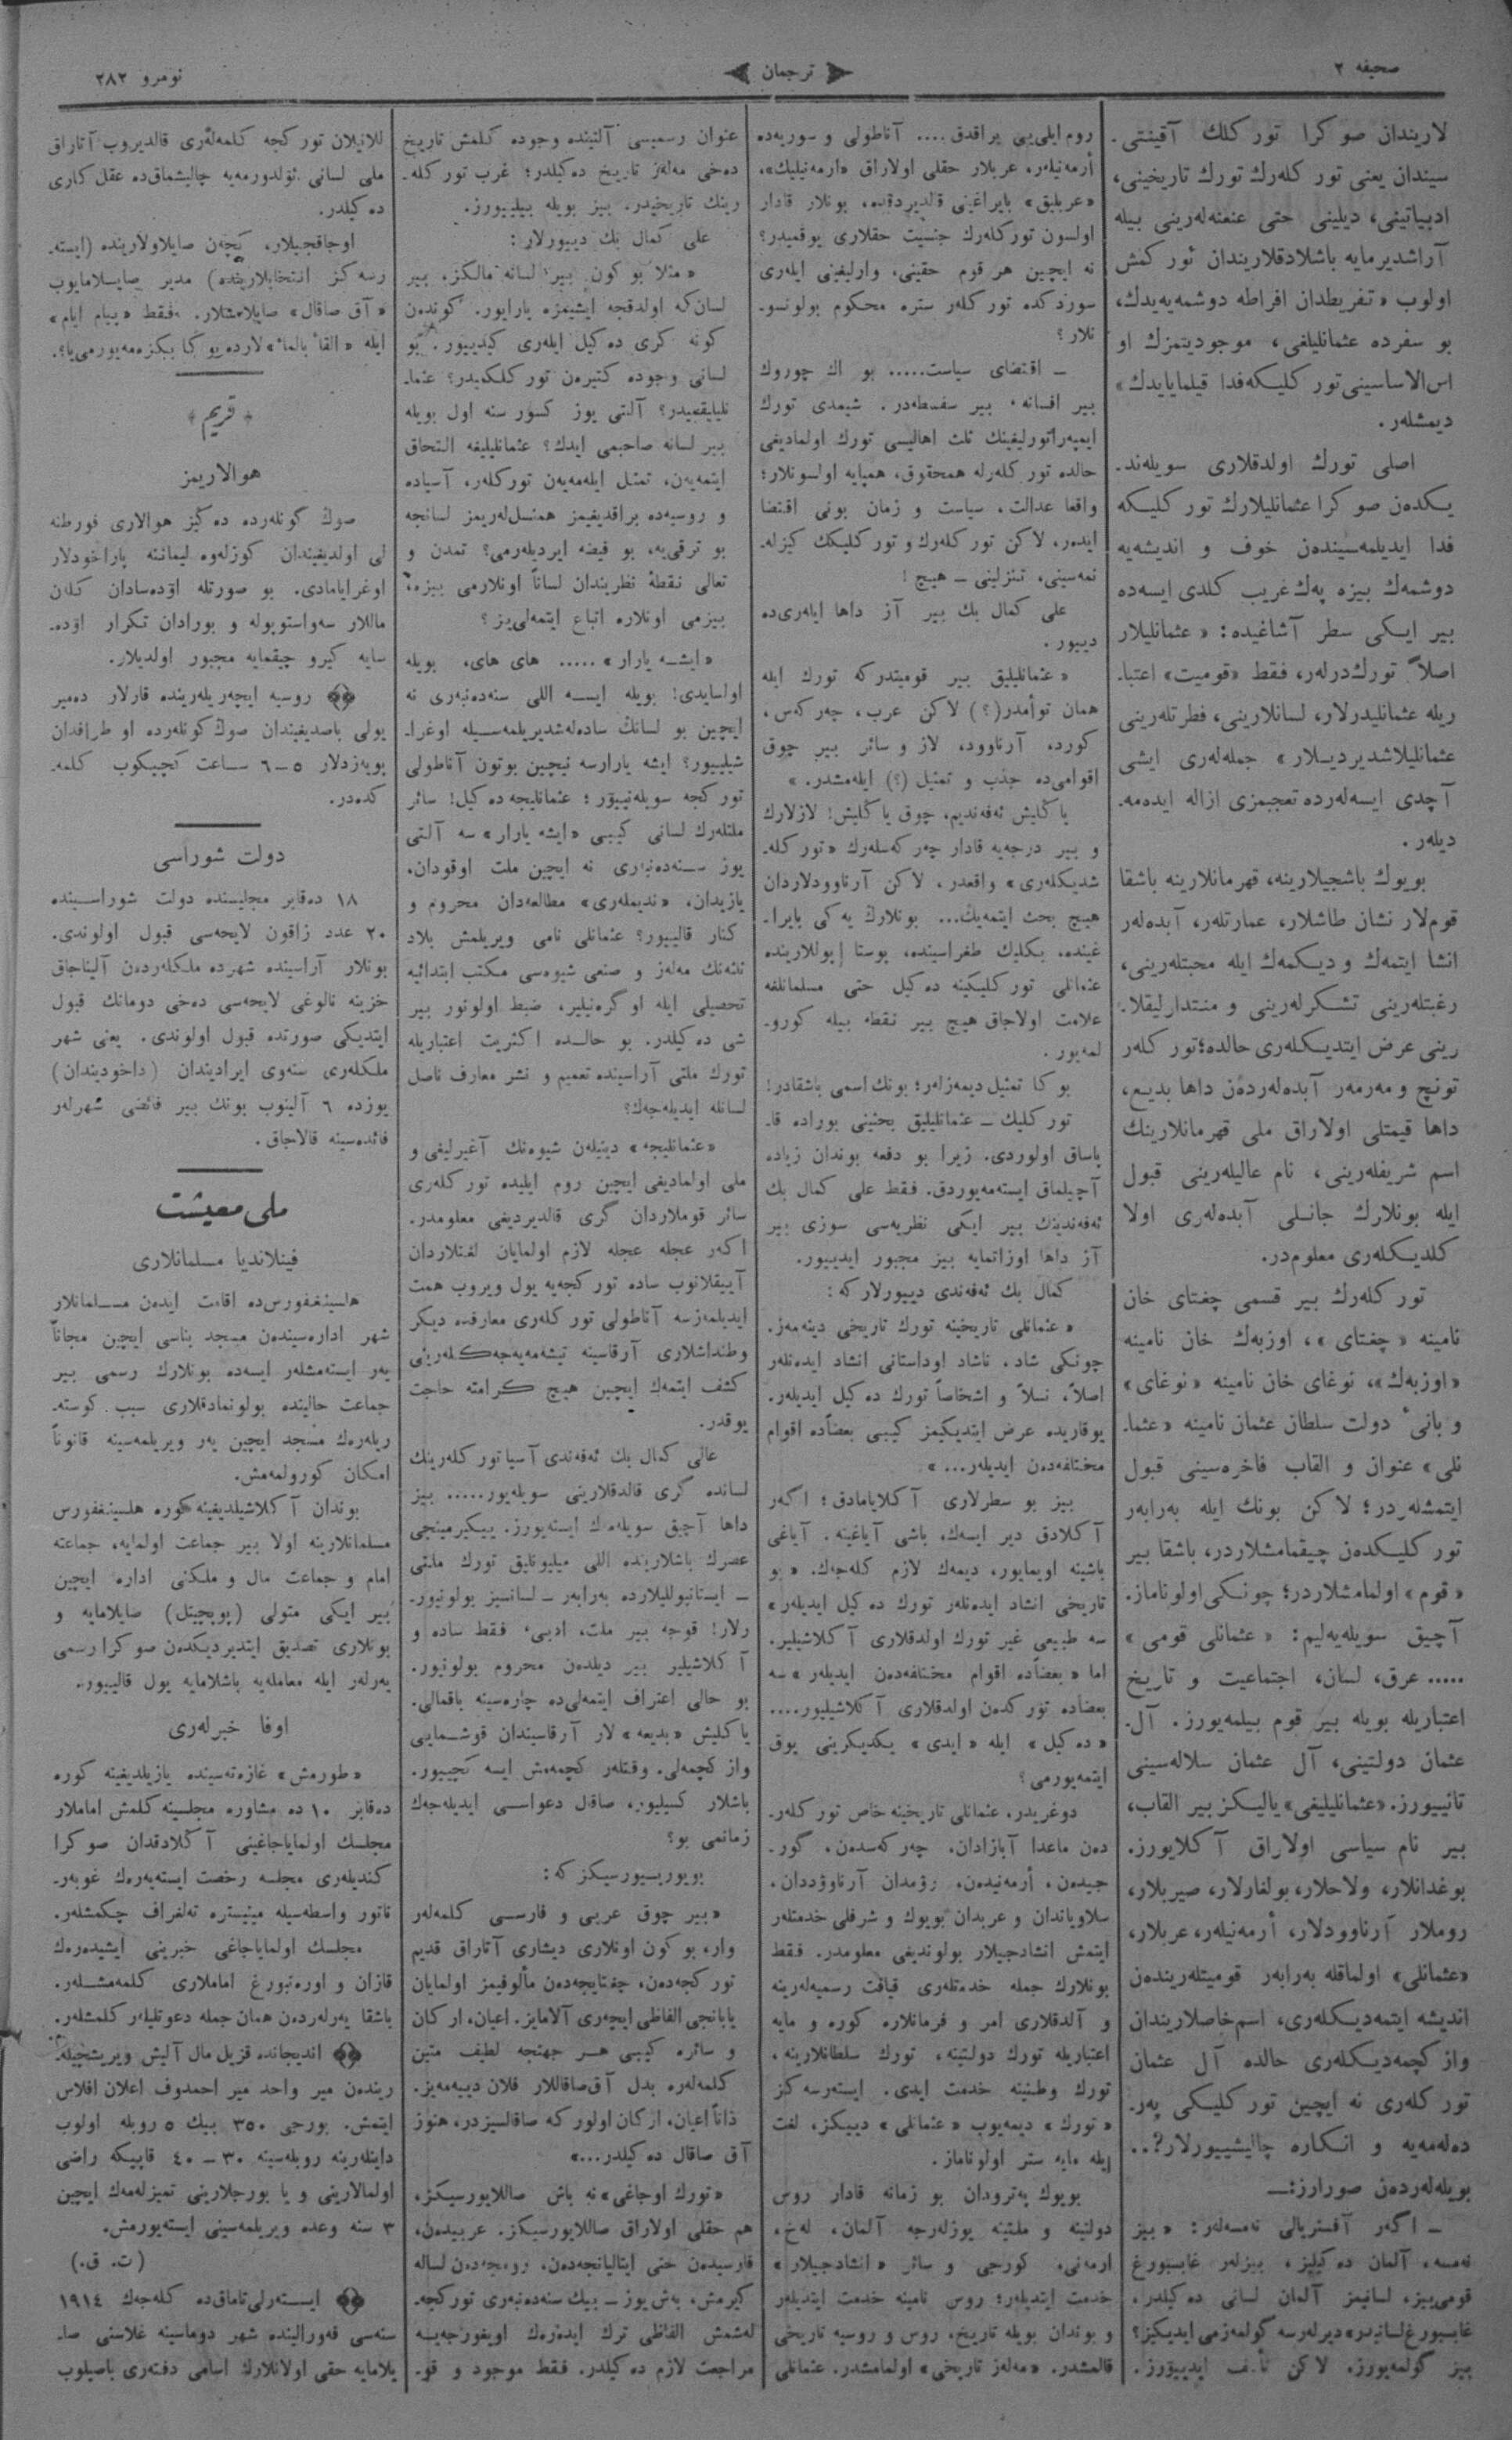 صحیفه ۲
ترجمان
نومرو ۲۸۲
لاریندان صوکرا تورکلك آقینتی‌ـ
سیندان یعنی تورکلەرك تورك تاریخینی،
ادبیاتینی، دیلینی حتی عنعنەلەرینی بیلە
آراشدیرمایە باشلادقلاریندان ئورکمش
اولوب «تفریطدان افراطە دوشمەیەیدك،
بو سفردە عثمانلیلغی، موجودیتمزك او
اس‌الاساسینی تورکلیکە فدا قیلمایایدك»
دیمشلەر.
اصلی تورك اولدقلاری سویلەندـ
یکدەن صوکرا عثمانلیلارك تورکلیکە
فدا ایدیلمەسیندەن خوف و اندیشەیە
دوشمەك بیزە پەك غریب کلدی ایسەدە
بیر ایکی سطر آشاغیدە: «عثمانلیلار
اصلاً تورك‌درلەر، فقط «قومیت» اعتباـ
ریلە عثمانلیدرلار، لسانلارینی، فطرتلەرینی
عثمانلیلاشدیردیلار» جملەلەری ایشی
آچدی ایسەلەردە تعجبمزی ازالە ایدەمەـ
دیلەر.
بویوك باشجیلارینە، قهرمانلارینە باشقا
قوم‌لار نشان طاشلار، عمارتلەر، آبدەلەر
انشا ایتمەك و دیکمەك ایلە محبتلەرینی،
رغبتلەرینی تشکرلەرینی و منتدارلیقلاـ
رینی عرض ایتدیکلەری حالدە؛ تورکلەر
تونچ و مەرمەر آبدەلەردەن داها بدیع،
داها قیمتلی اولاراق ملی قهرمانلارینك
اسم شریفلەرینی، نام عالیلەرینی قبول
ایلە بونلارك جانلی آبدەلەری اولا
کلدیکلەری معلوم‌در.
تورکلەرك بیر قسمی چغتای خان
نامینە «چغتای»، اوزبەك خان نامینە
«اوزبەك»، نوغای خان نامینە «نوغای»
و بانیٔ دولت سلطان عثمان نامینە «عثماـ
نلی» عنوان و القاب فاخرەسینی قبول
ایتمشلەردر؛ لاکن بونك ایلە بەرابەر
تورکلیکدەن چیقمامشلاردر، باشقا بیر
«قوم» اولمامشلاردر؛ چونکی اولوناماز.
آچیق سویلەیەلیم: «عثمانلی قومی»
..... عرق، لسان، اجتماعیت و تاریخ
اعتباریلە بویلە بیر قوم بیلمەیورز. آل‌ـ
عثمان دولتینی، آل عثمان سلالەسینی
تانییورز. «عثمانلیلیغی» یالیکز بیر القاب،
بیر نام سیاسی اولاراق آکلایورز.
بوغدانلار، ولاحلار، بولغارلار، صیربلار،
روملار آرناوودلار، أرمەنیلەر، عربلار،
«عثمانلی» اولماقلە بەرابەر قومیتلەریندەن
اندیشە ایتمەدیکلەری، اسم خاصلاریندان
واز کچمەدیکلەری حالدە آل عثمان
تورکلەری نە ایچین تورکلیکی پەرـ
دەلەمەیە و انکارە چالیشییورلار؟..
بویلەلەردەن صورارز:ـ
ـ اگەر آفستریالی نەمسەلەر: «بیز
نەمسە، آلمان دەکیلیز، بیزلەر غابسبورغ
قومی‌یز، لسانیمز آلمان لسانی دەکیلدر،
غابسبورغ لسانیدر» دیرلەرسە گولمەزمی ایدیکیز؟
بیز گولمەیورز. لاکن تأسف ایدییورز.
روم ایلی‌یی براقدق.... آناطولی و سوریەدە
أرمەنیلەر، عربلار حقلی اولاراق «ارمەنیلیك»،
«عربلیق» بایراغینی قالدیردقدە، بونلار قادار
اولسون تورکلەرك جنسیت حقلاری یوقمیدر؟
نە ایچین هر قوم حقینی، وارلیغینی ایلەری
سوردکدە تورکلەر سترە محکوم بولونسوـ
نلار؟
ـ اقتضای سیاست..... بو اك چوروك
بیر افسانە، بیر سفسطەدر. شیمدی تورك
ایمپەراتورلیغینك ثلث اهالیسی تورك اولمادیغی
حالدە تورکلەرلە همحقوق، همپایە اولسونلار؛
واقعا عدالت، سیاست و زمان بونی اقتضا
ایدەر، لاکن تورکلەرك و تورکلیکك کیزلەـ
نمەسینی، تنزلینی ـ هیچ!
علی کمال بك بیر آز داها ایلەری‌دە
دییور.
«عثمانلیلیق بیر قومیتدرکە تورك ایلە
همان توأمدر(؟) لاکن عرب، چەرکەس،
کورد، آرناوود، لاز و سائر بیر چوق
اقوامی‌دە جذب و تمثیل (؟) ایلەمشدر.»
یاکلیش ئەفەندیم، چوق یاکلیش! لازلارك
و بیر درجەیە قادار چەرکەسلەرك «تورکلەـ
شدیکلەری» واقعدر، لاکن آرناوودلاردان
هیچ بحث ایتمەیك... بونلارك یەکی بایراـ
غیندە، بکلیك طغراسیندە، پوستا پوللاریندە
عثمانلی تورکلیکینە دەکیل حتی مسلمانلغە
علامت اولاجاق هیچ بیر نقطە بیلە کوروـ
لمەیور.
بوکا تمثیل دیمەزلەر؛ بونك اسمی باشقادر!
تورکلیك ـ عثمانلیلیق بحثینی بورادە قاـ
پاساق اولوردی. زیرا بو دفعە بوندان زیادە
آچیلماق ایستەمەیوردق. فقط علی کمال بك
ئەفەندینك بیر ایکی نظریەسی سوزی بیر
آز داها اوزاتمایە بیز مجبور ایدییور.
کمال بك ئەفەندی دییورلارکە:
«عثمانلی تاریخینە تورك تاریخی دینەمەز.
چونکی شاد، ناشاد اوداستانی انشاد ایدەنلەر
اصلاً، نسلاً و اشخاصاً تورك دەکیل ایدیلەر.
یوقاریدە عرض ایتدیکیمز کیبی بعضادە اقوام
مختلفەدەن ایدیلەر...»
بیز بو سطرلاری آکلایامادق؛ اگەر
آکلادق دیر ایسەك، باشی آیاغینە، آیاغی
باشینە اویمایور، دیمەك لازم کلەجەك. «بو
تاریخی انشاد ایدەنلەر تورك دەکیل ایدیلەر»
سە طبیعی غیر تورك اولدقلاری آکلاشیلیر.
اما «بعضادە اقوام مختلفەدەن ایدیلەر» سە
بعضادە تورکدەن اولدقلاری آکلاشیلیور....
«دەکیل» ایلە «ایدی» یکدیکرینی یوق
ایتمەیورمی؟
دوغریدر، عثمانلی تاریخینە خاص تورکلەرـ
دەن ماعدا آبازادان، چەرکەسدەن، گورـ
جیدەن، أرمەنیدەن، رومدان آرناووددان،
سلاویاندان و عربدان بویوك و شرفلی خدمتلەر
ایتمش انشادجیلار بولوندیغی معلومدر. فقط
بونلارك جملە خدمتلەری قیافت رسمیەلەرینە
و آلدقلاری امر و فرمانلارە کورە و مایە
اعتباریلە تورك دولتینە، تورك سلطانلارینە،
تورك وطنینە خدمت ایدی. ایستەرسەکز
«تورك» دیمەیوب «عثمانلی» دییکز، لغت
ایلە مایە ستر اولوناماز.
بویوك پەترودان بو زمانە قادار روس
دولتینە و ملتینە یوزلەرجە آلمان، لەخ،
ارمەنی، کورجی و سائر «انشادجیلار»
خدمت ایتدیلەر؛ روس نامینە خدمت ایتدیلەر
و بوندان بویلە تاریخ، روس و روسیە تاریخی
قالمشدر. «مەلەز تاریخی» اولمامشدر. عثمانلی
عنوان رسمیسی آلتیندە وجودە کلمش تاریخ
دەخی مەلەز تاریخ دەکیلدر؛ غرب تورکلەـ
رینك تاریخیدر. بیز بویلە بیلییورز.
علی کمال بك دییورلار:
«مثلا بو کون بیر لسانە مالکز. بیر
لسان‌کە اولدقجە ایشیمزە یارایور. کوندەن
کونە کری دەکیل ایلەری کیدییور. بو
لسانی وجودە کتیرەن تورکلکمیدر؟ عثماـ
نلیلیقمیدر؟ آلتی یوز کسور سنە اول بویلە
بیر لسانە صاحبمی ایدك؟ عثمانلیلیغە التحاق
ایتمەیەن، تمثل ایلەمەیەن تورکلەر، آسیادە
و روسیەدە براقدیغیمز همنسل‌لەریمز لسانجە
بو ترقی‌یە، بو فیضە ایردیلەرمی؟ تمدن و
تعالی نقطۀ نظریندان لساناً اونلارمی بیزە،
بیزمی اونلارە اتباع ایتمەلی‌یز؟
«ایشە یارار»..... های های، بویلە
اولسایدی! بویلە ایسە اللی سنەدەنبەری نە
ایچین بو لسانك سادەلەشدیریلمەسیلە اوغراـ
شیلییور؟ ایشە یارارسە نیچین بوتون آناطولی
تورکجە سویلەنییور؛ عثمانلیجە دەکیل! سائر
ملتلەرك لسانی کیبی «ایشە یارار» سە آلتی
یوز سنەدەنبەری نە ایچین ملت اوقودان،
یازیدان، «ندیملەری» مطالعەدان محروم و
کنار قالییور؟ عثمانلی نامی ویریلمش بلاد
ثلثەنك مەلەز و صنعی شیوەسی مکتب ابتدائیە
تحصیلی ایلە اوگرەنیلیر، ضبط اولونور بیر
شی دەکیلدر. بو حالدە اکثریت اعتباریلە
تورك ملتی آراسیندە تعمیم و نشر معارف ناصل
لسانلە ایدیلەجەك؟
«عثمانلیجە» دینیلەن شیوەنك آغیرلیغی و
ملی اولمادیغی ایچین روم ایلیدە تورکلەری
سائر قوملاردان گری قالدیردیغی معلومدر.
اکەر عجلە عجلە لازم اولمایان لغتلاردان
آییقلانوب سادە تورکجەیە یول ویروب همت
ایدیلمەزسە آناطولی تورکلەری معارفدە دیکر
وطنداشلاری آرقاسینە تیشەمەیەجەکلەرینی
کشف ایتمەك ایچین هیچ کرامتە حاجت
یوقدر.
عالی کمال بك ئەفەندی آسیا تورکلەرینك
لساندە گری قالدقلارینی سویلەیور..... بیز
داها آچیق سویلەمك ایستەیورز. ییکیرمینجی
عصرك باشلاریندە اللی میلیونلیق تورك ملتی
ـ ایستانبوللیلاردە بەرابەر ـ لسانسیز بولونیورـ
رلار! قوجە بیر ملت، ادبی، فقط سادە و
آکلاشیلیر بیر دیلدەن محروم بولونیور.
بو حالی اعتراف ایتمەلی‌دە چارەسینە باقمالی.
یاکلیش «بدیعە» لار آرقاسیندان قوشمایی
واز کچمەلی. وقتلەر کچمەمش ایسە کچییور.
باشلار کسیلیور، صاقال دعواسی ایدیلەجەك
زمانمی بو؟
بویوریسیورسیکز کە:
«بیر چوق عربی و فارسی کلمەلەر
وار، بو کون اونلاری دیشاری آتاراق قدیم
تورکجەدەن، چغتایجەدەن مألوفیمز اولمایان
یابانجی الفاظی ایچەری آلامایز. اعیان، ارکان
و سائرە کیبی هر جهتجە لطیف متین
کلمەلەرە بدل آق‌صاقاللار فلان دییەمەیز.
ذاتاً اعیان، ارکان اولورکە صاقالسیزدر، هنوز
آق صاقال دەکیلدر...»
«تورك اوجاغی» نە باش صاللایورسیکز،
هم حقلی اولاراق صاللایورسیکز. عربیدەن،
فارسیدەن حتی ایتالیانجەدەن، رومجەدەن لسالە
کیرمش، بەش یوز ـ بیك سنەدەنبەری تورکجەـ
لەشمش الفاظی ترك ایدەرەك اویغورجەیە
مراجعت لازم دەکیلدر. فقط موجود و قوـ
للانیلان تورکجە کلمەلەری قالدیروب آتاراق
ملی لسانی ئولدورمەیە چالیشماق‌دە عقل کاری
دەکیلدر.
اوجاقجیلار، کچەن صایلاولاریندە (ایستەـ
رسەکز انتخابلاریندە) مدیر صایلامایوب
«آق صاقال» صایلامشلار. فقط «بیام ایام»
ایلە «القاٴ بالماٴ» لاردە بوکا بکزەمەیورمی یا؟.
﴿قریم﴾
هوالاریمز
صوك گونلەردە دەکیز هوالاری فورطنەـ
لی اولدیغیندان کوزلەوە لیمانینە پاراخودلار
اوغرایامادی. بو صورتلە اودەسادان کلەن
ماللار سەواستوپولە و بورادان تکرار اودەـ
سایە کیرو چیقمایە مجبور اولدیلار.
روسیە ایچەریلەریندە قارلار دەمیر
یولی باصدیغیندان صوك کونلەردە او طرافدان
پویەزدلار ۵ـ٦ ساعت کچیکوب کلمەـ
کدەدر.
دولت شوراسی
۱۸ دەقابر مجلیسندە دولت شوراسیندە
۲۰ عدد زاقون لایحەسی قبول اولوندی.
بونلار آراسیندە شهردە ملکلەردەن آلیناجاق
خزینە نالوغی لایحەسی دەخی دومانك قبول
ایتدیکی صورتدە قبول اولوندی. یعنی شهر
ملکلەری سنەوی ایرادیندان (داخودیندان)
یوزدە ٦ آلینوب بونك بیر قائضی شهرلەر
فائدەسینە قالاجاق.
ملی معیشت
فینلاندیا مسلمانلاری
هلسینغفورس‌دە اقامت ایدەن مسلمانلار
شهر ادارەسیندەن مسجد بناسی ایچین مجاناً
یەر ایستەمشلەر ایسەدە بونلارك رسمی بیر
جماعت حالیندە بولونمادقلاری سبب کوستەـ
ریلەرەك مسجد ایچین یەر ویریلمەسینە قانوناً
امکان کورولمەمش.
بوندان آکلاشیلدیغینە کورە هلسینغفورس
مسلمانلارینە اولا بیر جماعت اولمایە، جماعتە
امام و جماعت مال و ملکنی ادارە ایچین
بیر ایکی متولی (پوپچیتل) صایلامایە و
بونلاری تصدیق ایتدیردیکدەن صوکرا رسمی
یەرلەر ایلە معاملەیە باشلامایە یول قالییور.
اوفا خبرلەری
«طورمش» غازەتەسیندە یازیلدیغینە کورە
دەقابر ۱۰ دە مشاورە مجلسینە کلمش اماملار
مجلسك اولمایاجاغینی آکلادقدان صوکرا
کندیلەری مجلسە رخصت ایستەیەرەك غوبەرـ
ناتور واسطەسیلە مینیسترە تەلغراف چکمشلەر.
مجلسك اولمایاجاغی خبرینی ایشیدەرەك
قازان و اورەنبورغ اماملاری کلمەمشلەر.
باشقا یەرلەردەن همان جملە دعوتلیلەر کلمشلەر.
اندیجاندە قزیل مال آلیش ویریشجیلەـ
ریندەن میر واحد میر احمدوف اعلان افلاس
ایتمش. بورجی ۳۵۰ بیك ۵ روبلە اولوب
داینلەرینە روبلەسینە ۳۰ ـ ٤۰ قاپیکە راضی
اولمالارینی و یا بورجلارینی تمیزلەمەك ایچین
۳ سنە وعدە ویریلمەسینی ایستەیورمش.
(ت. ق.)
ایستەرلی‌تاماق‌دە کلەجەك ۱۹۱٤
سنەسی فەورالیندە شهر دوماسینە غلاسنی صاـ
یلامایە حقی اولانلارك اسامی دفتەری باصیلوب